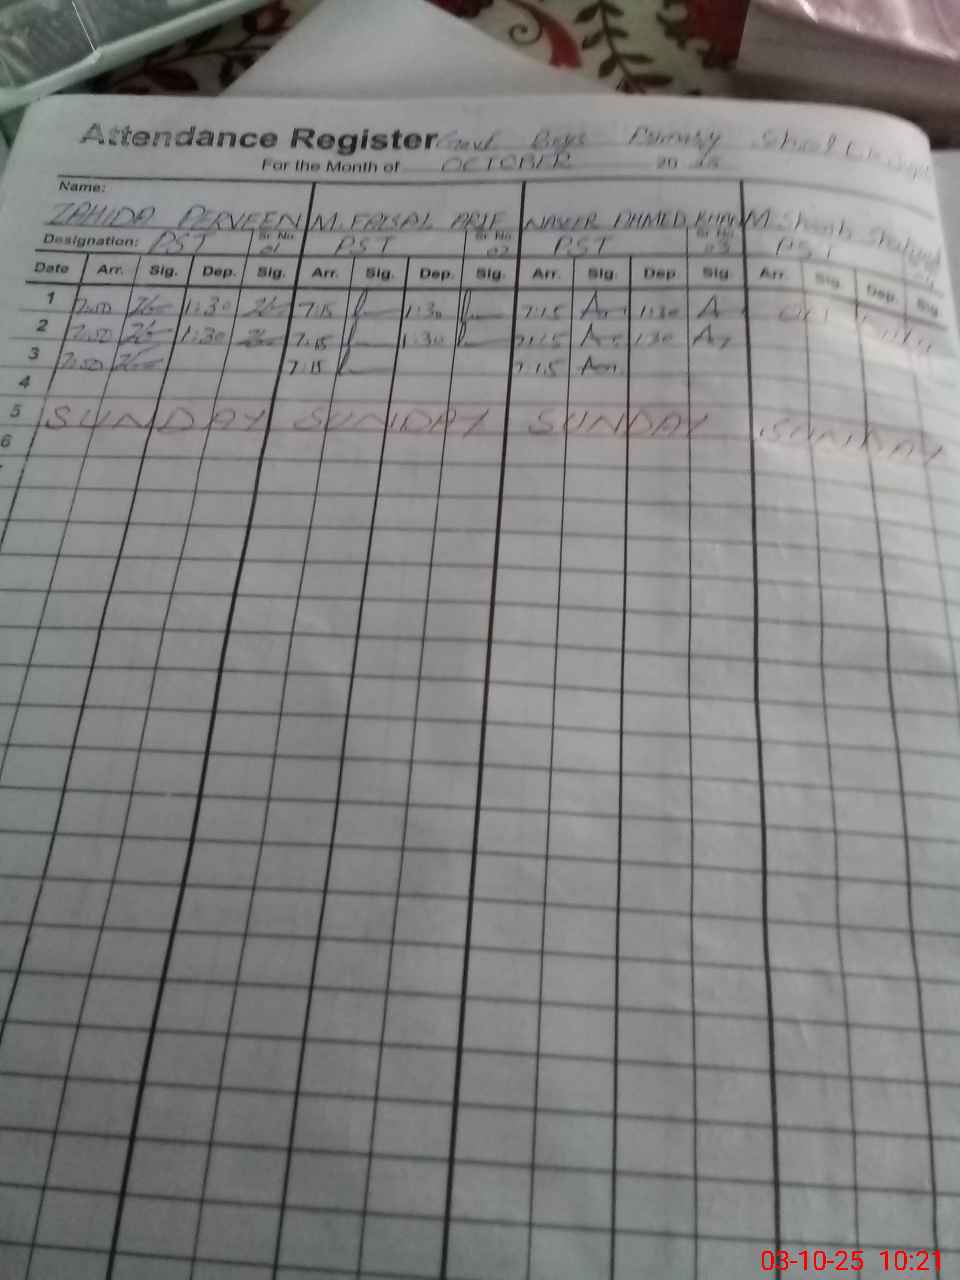 Attendance Register Govt Boys Primary School
For the Month of OCTOBER 20 25
Name:
ZAHIDA PERVEEN M. FAISAL ARIF NASEER AHMED KHAN M. Shoaib Shahzad
Designation: PST Sr No. 01 PST Sr No. 02 PST Sr No. 03 PST
Date Arr. Sig. Dep. Sig. Arr. Sig. Dep. Sig. Arr. Sig. Dep. Sig. Arr. Sig. Dep. Sig.
1 7:50 1:30 7:15 1:30 7:15 1:30
2 7:50 1:30 7:15 1:30 7:15 1:30
3 7:50 7:15 7:15
4
5 SUNDAY SUNDAY SUNDAY SUNDAY
6
03-10-25 10:21